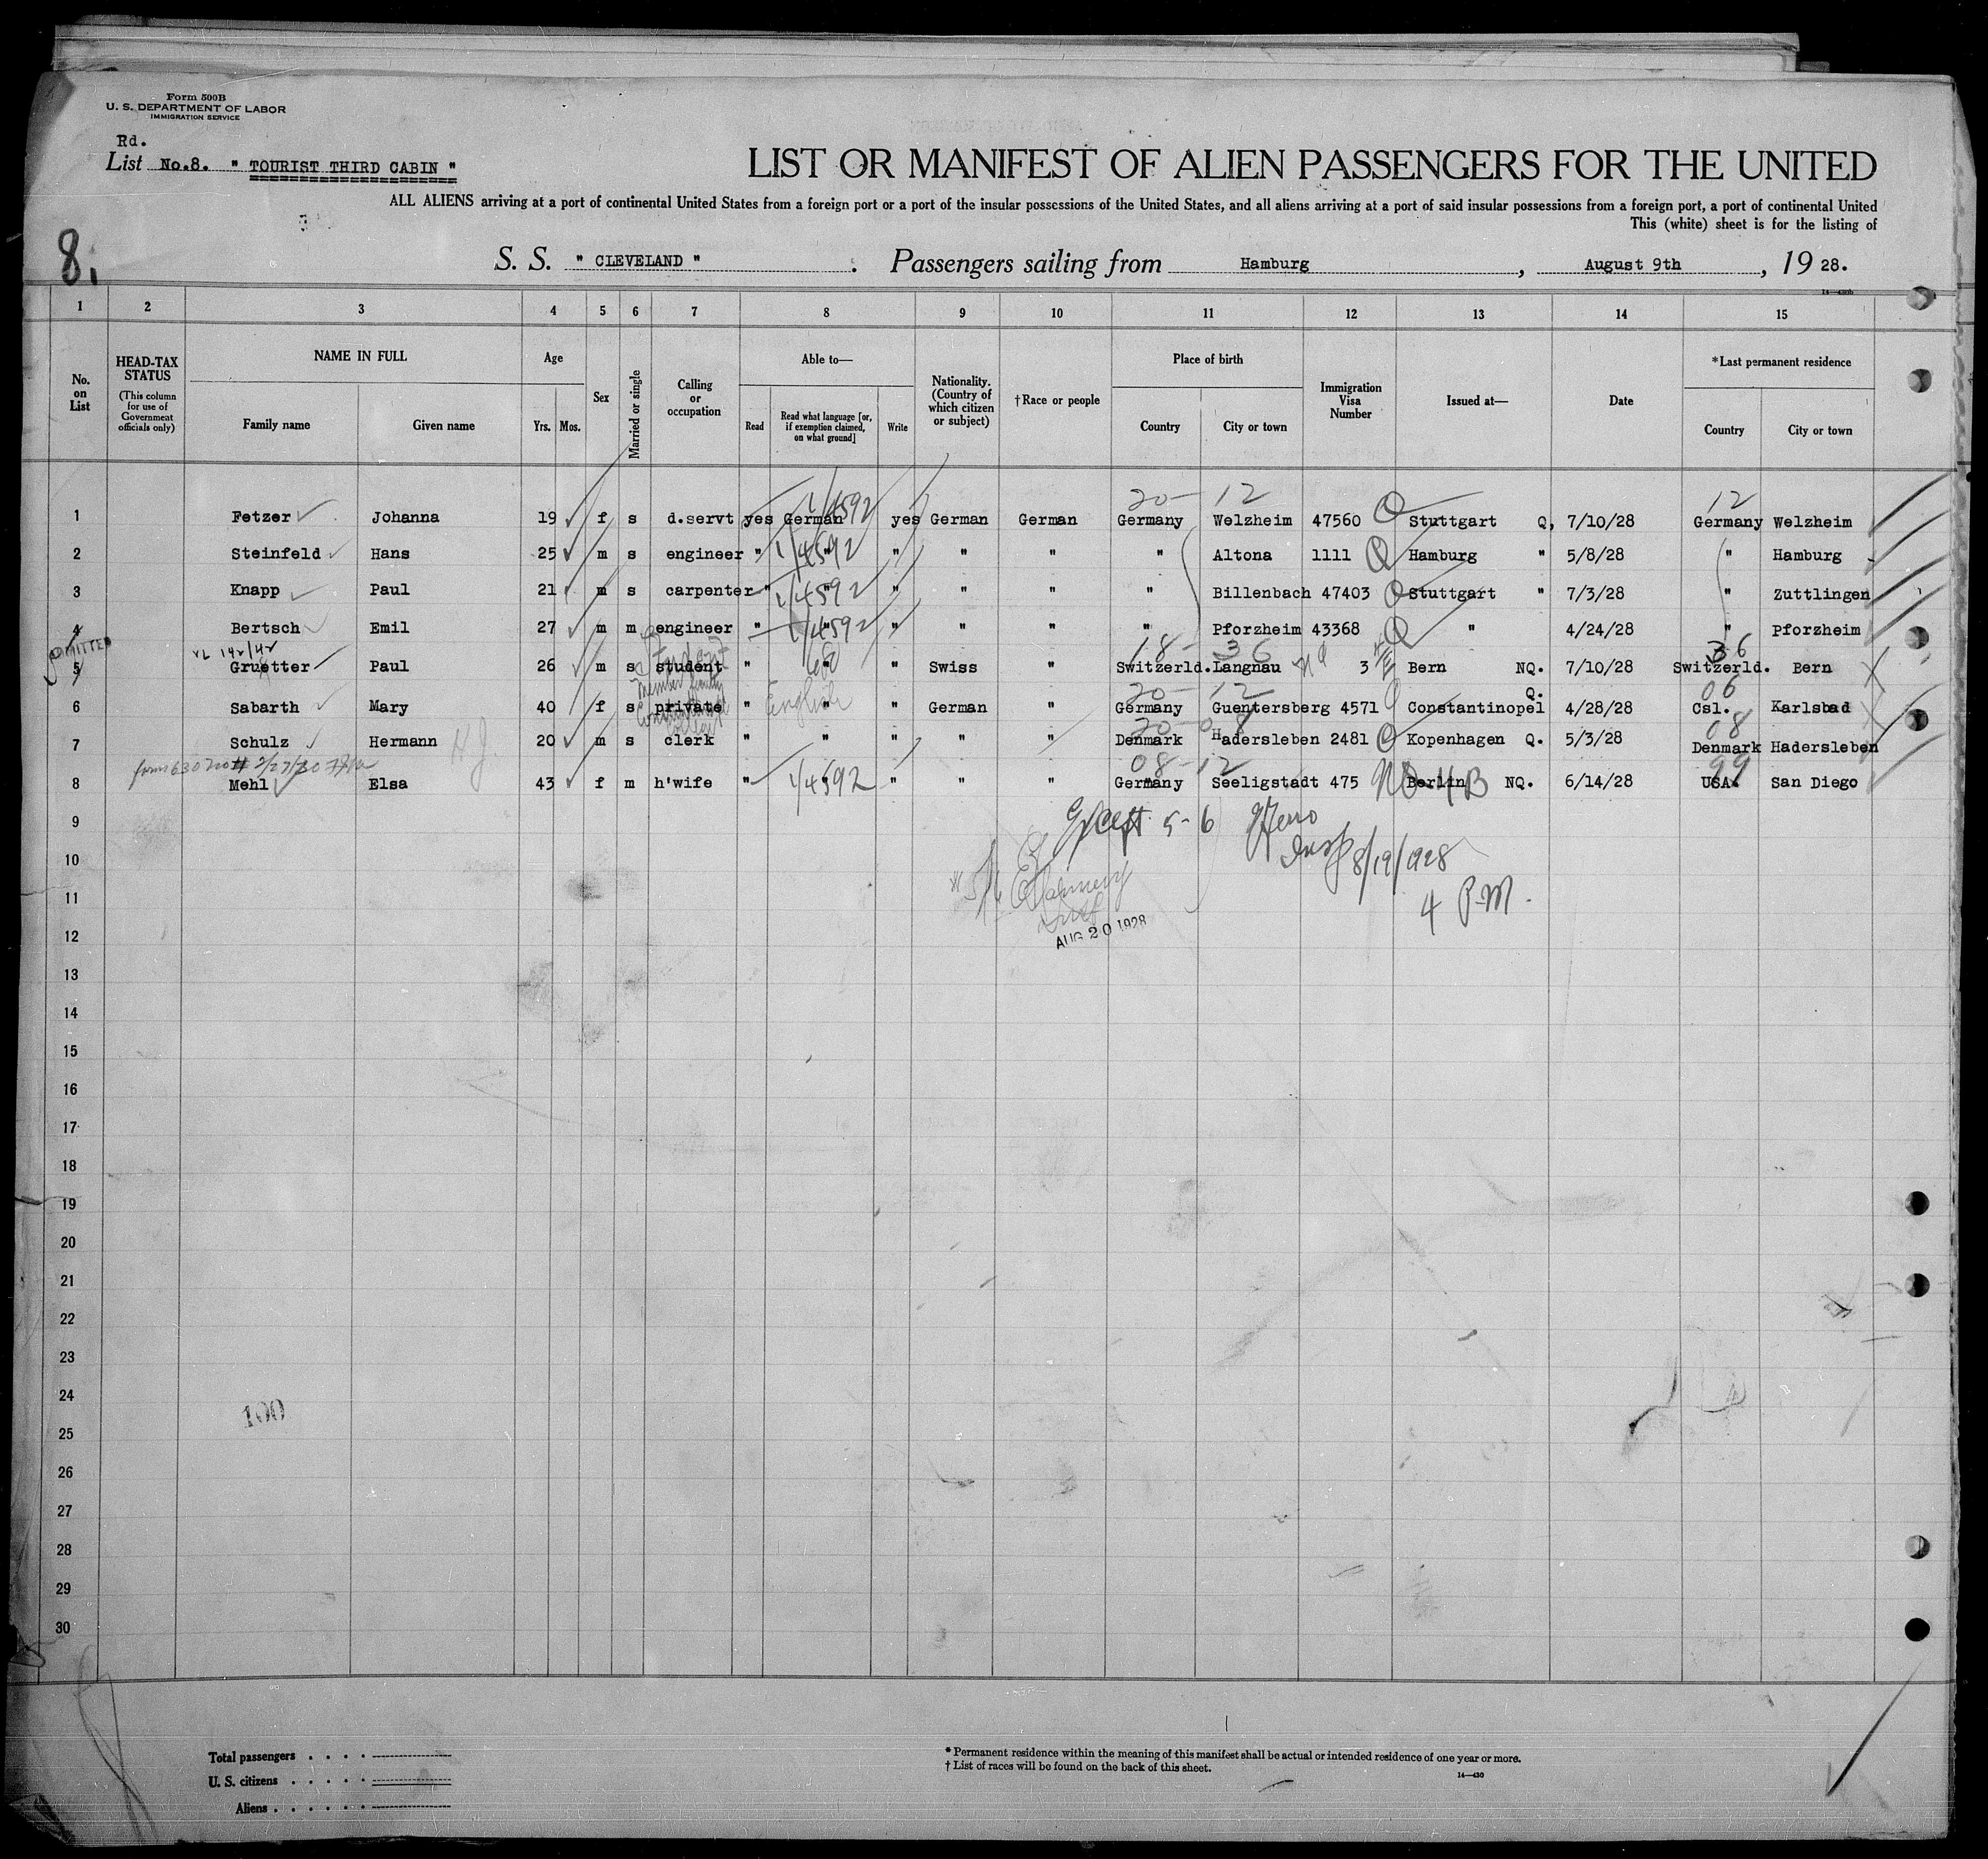 Form 500B
U. S. DEPARTMENT OF LABOR
IMMIGRATION SERVICE
Rd.
List No.8. " TOURIST THIRD CABIN "
LIST OR MANIFEST OF ALIEN PASSENGERS FOR THE UNITED
ALL ALIENS arriving at a port of continental United States from a foreign port or a port of the insular possessions of the United States, and all aliens arriving at a port of said insular possessions from a foreign port, a port of continental United
This (white) sheet is for the listing of
8.
S. S. " CLEVELAND " . Passengers sailing from Hamburg , August 9th , 19 28.
1 2 3 4 5 6 7 8 9 10 11 12 13 14 15
No. on List
HEAD-TAX STATUS
(This column for use of Government officials only)
NAME IN FULL
Family name Given name
Age
Yrs. Mos.
Sex
Married or single
Calling or occupation
Able to—
Read
Read what language [or, if exemption claimed, on what ground]
Write
Nationality. (Country of which citizen or subject)
†Race or people
Place of birth
Country City or town
Immigration Visa Number
Issued at—
Date
*Last permanent residence
Country City or town
1/4592 20- 12 12
1 Fetzer Johanna 19 f s d.servt yes German yes German German Germany Welzheim 47560 Q Stuttgart Q, 7/10/28 Germany Welzheim
2 Steinfeld Hans 25 m s engineer " 1/4592 " " " " " Altona 1111 Q Hamburg " 5/8/28 " Hamburg
3 Knapp Paul 21 m s carpenter " 1/4592 " " " " " Billenbach 47403 Q Stuttgart " 7/3/28 " Zuttlingen
4 Bertsch Emil 27 m m engineer " 1/4592 " " " " " Pforzheim 43368 Q " 4/24/28 " Pforzheim
ADMITTED VL 142/42 Student 18- 36 36
5 Gruetter Paul 26 m s student " " " Swiss " Switzerld. Langnau 3 Bern NQ. 7/10/28 Switzerld. Bern
20- 12 Q. 06
6 Sabarth Mary 40 f s private " English " German " Germany Guentersberg 4571 Constantinopel 4/28/28 Csl. Karlsbad
20-08 08
7 Schulz Hermann 20 m s clerk " " " " " Denmark Hadersleben 2481 Q Kopenhagen Q. 5/3/28 Denmark Hadersleben
08-12 99
8 Mehl Elsa 43 f m h'wife " 1/4592 " " " " Germany Seeligstadt 475 Berlin NQ. 6/14/28 USA. San Diego
9
Except 5-6
10
Insp 8/19/1928
11
4 P.M.
AUG 20 1928
12
13
14
15
16
17
18
19
20
21
22
23
24
100
25
26
27
28
29
30
Total passengers . . . .
U. S. citizens . . . . .
Aliens . . . . . .
* Permanent residence within the meaning of this manifest shall be actual or intended residence of one year or more.
† List of races will be found on the back of this sheet.
14—430